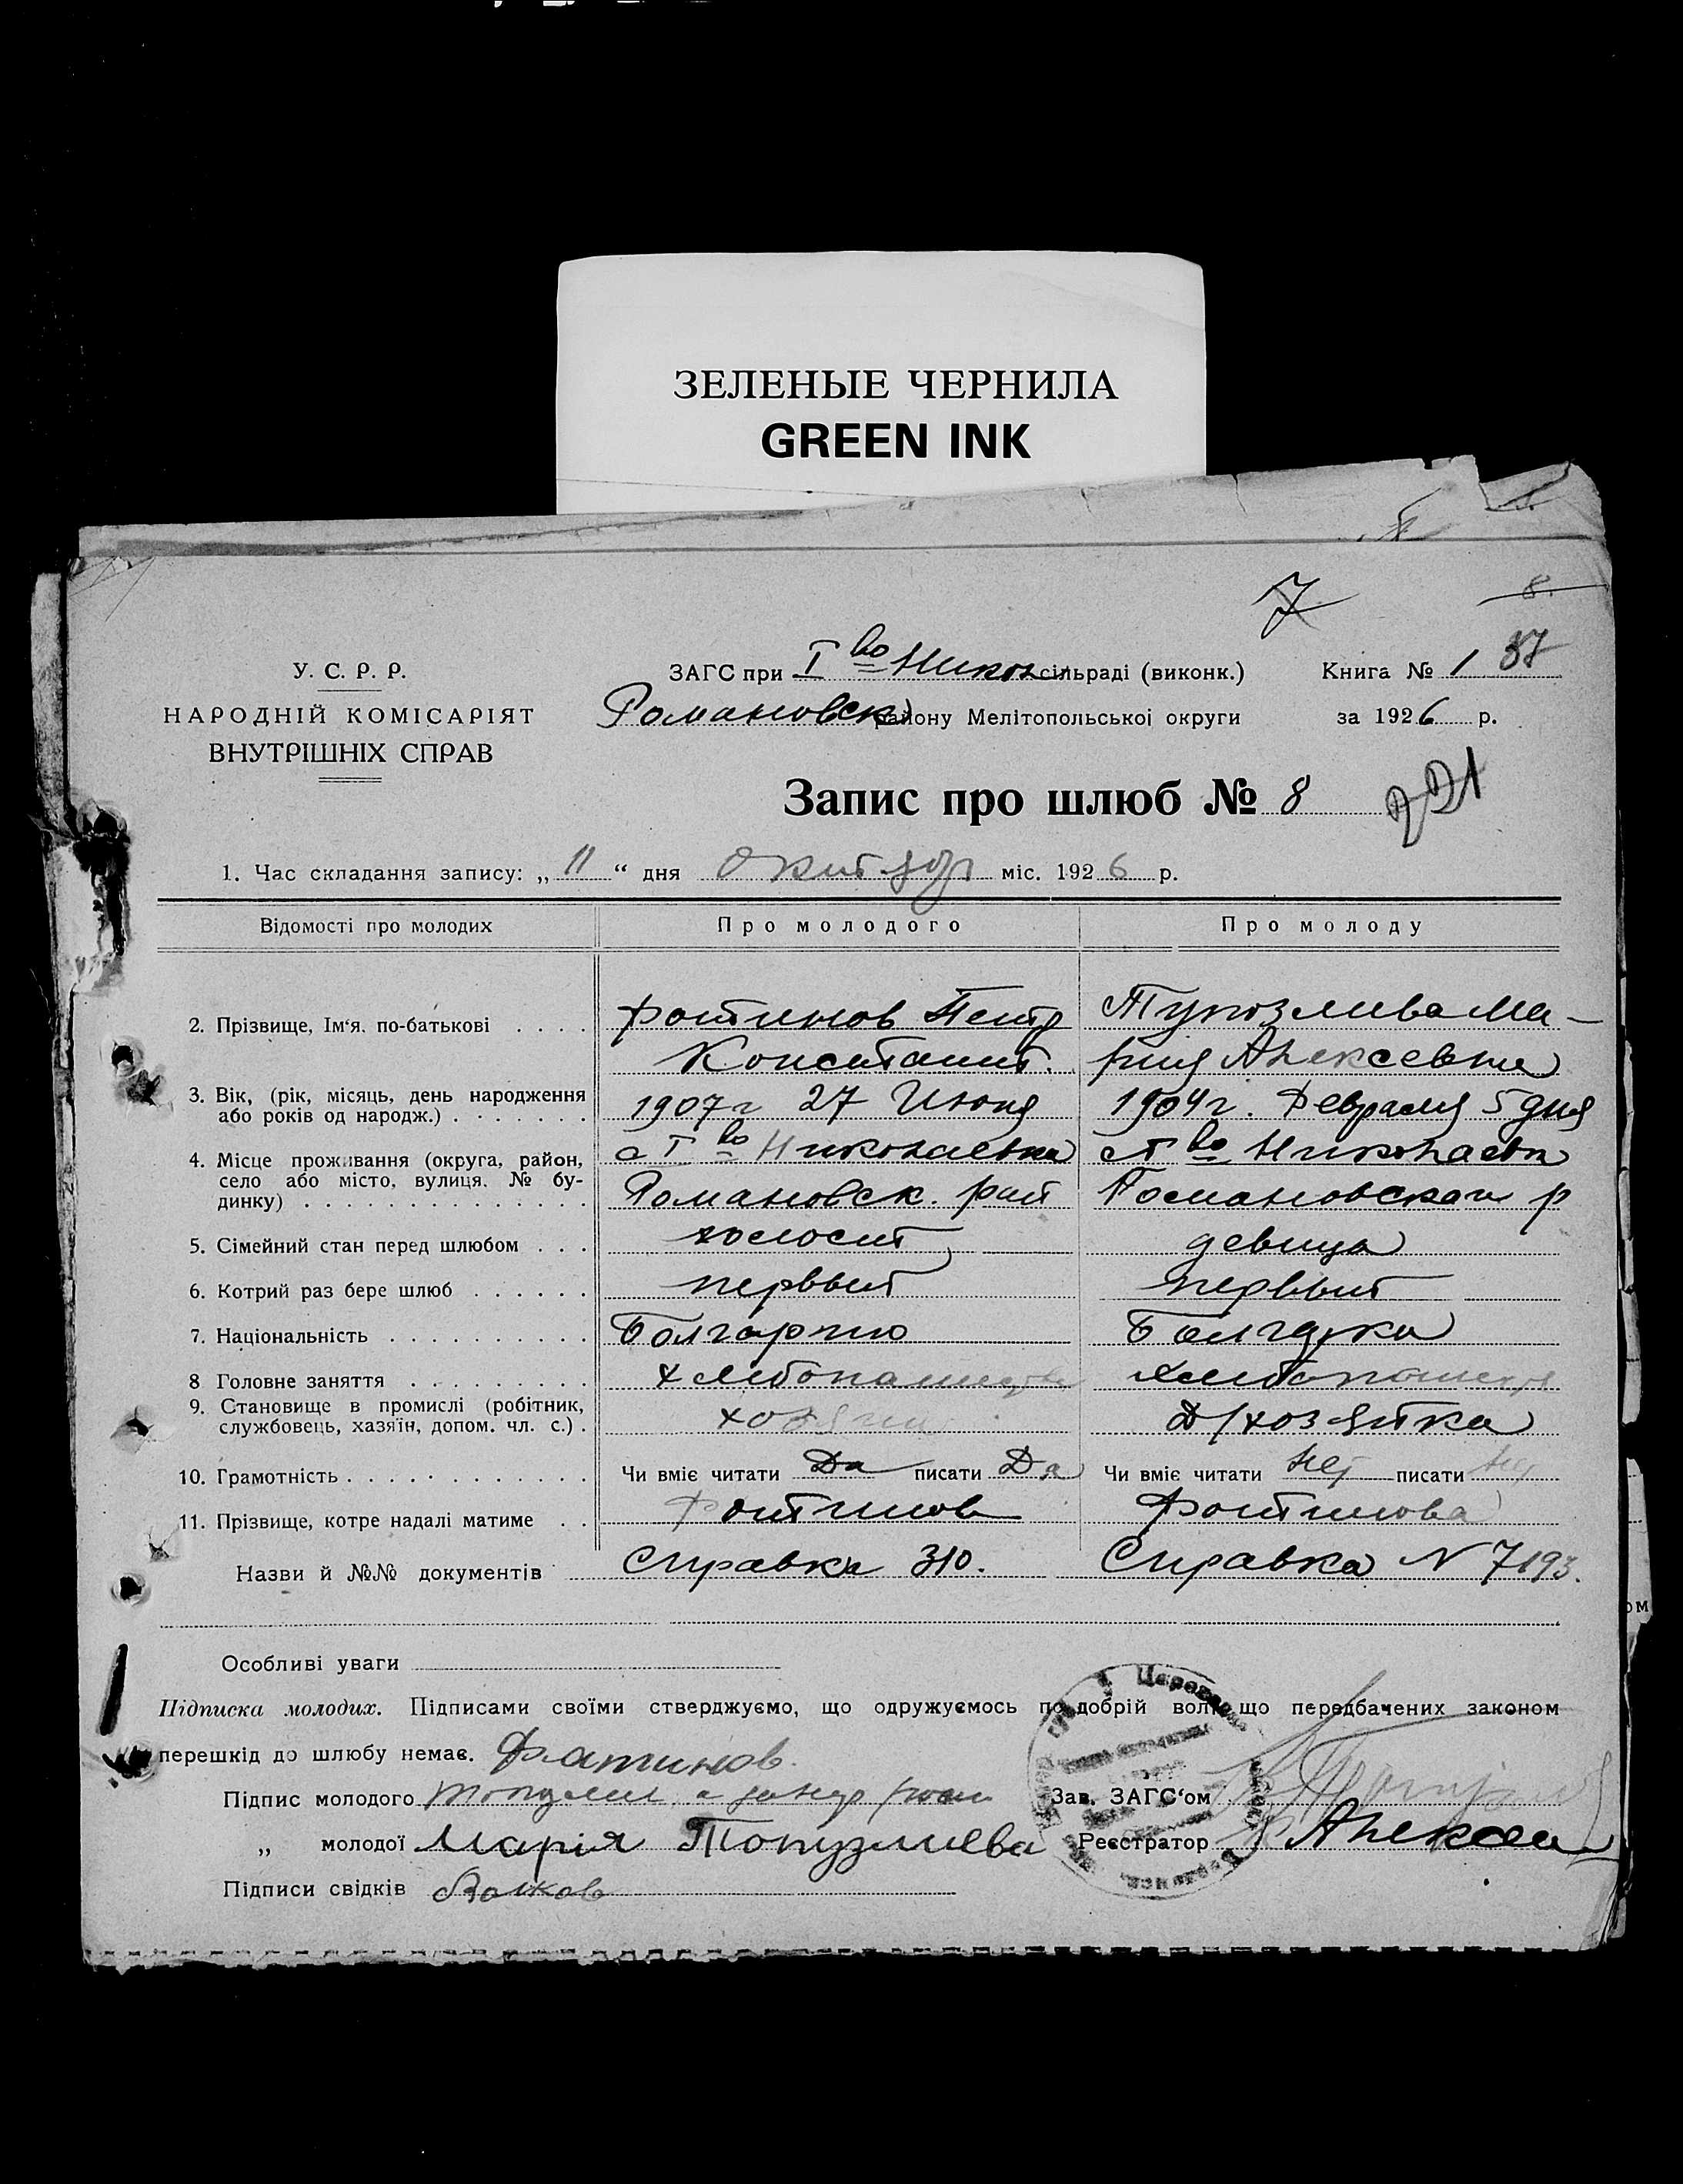 ЗЕЛЕНЫЕ ЧЕРНИЛА
GREEN INK
7
8.
У. С. Р. Р.
ЗАГС при I во Никол сільраді (виконк.) Книга № 1 37
НАРОДНІЙ КОМІСАРІЯТ
Романовск району Мелітопольської округи за 1926 р.
ВНУТРІШНІХ СПРАВ
Запис про шлюб № 8
1. Час складання запису: „11“ дня Октября міс. 1926 р.
Відомості про молодих Про молодого Про молоду
2. Прізвище, Ім‘я, по-батькові Фотинов Петр Тупозлива Ма-
Констант. рия Алексевна
3. Вік, (рік, місяць, день народження 1907 г 27 Июня 1904 г. Февраля 5 дня
або років од народж.)
4. Місце проживання (округа, район, с I во Николаевка с I во Николаевк
село або місто, вулиця, № бу- Романовск. рай Романовскаи р
динку)
5. Сімейний стан перед шлюбом холост девица
6. Котрий раз бере шлюб первый первый
7. Національність Болгарин Болгарка
8 Головне заняття Хлебопашество хлебопашеств
9. Становище в промислі (робітник, хозяин Д/хозяйка
службовець, хазяїн, допом. чл. с.)
10. Грамотність Чи вміє читати Да писати Да Чи вміє читати Нет писати Нет
11. Прізвище, котре надалі матиме Фотинов Фотинова
Назви й №№ документів Справка 310. Справка N 7193.
Особливі уваги
Підписка молодих. Підписами своїми стверджуємо, що одружуємось по добрій волі, що передбачених законом
перешкід до шлюбу немає. Фатинов.
Підпис молодого Зав. ЗАГС‘ом
„ молодої Мария Топузлиева Реєстратор Алексеев
Підписи свідків Волков